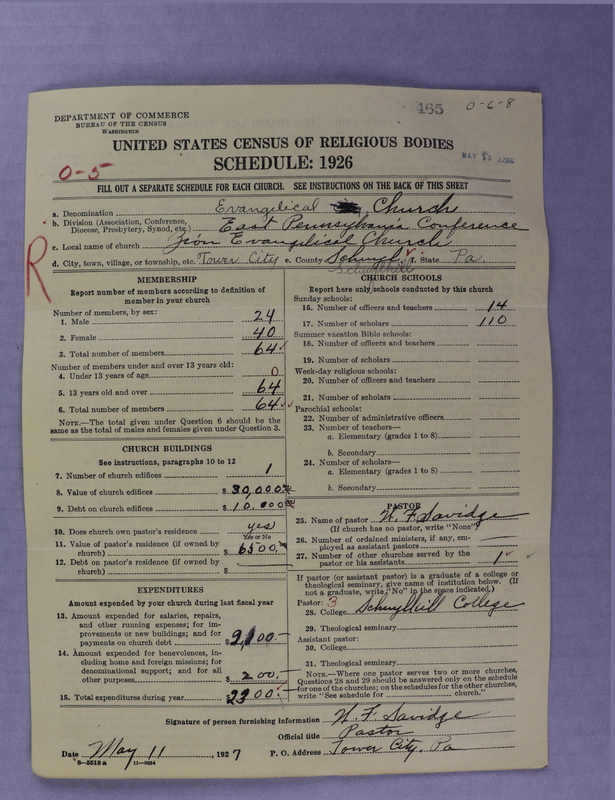 465 0-6-8
DEPARTMENT OF COMMERCE
BUREAU OF THE CENSUS
WASHINGTON
UNITED STATES CENSUS OF RELIGIOUS BODIES
SCHEDULE: 1926
MAY
0-5
FILL OUT A SEPARATE SCHEDULE FOR EACH CHURCH. SEE INSTRUCTIONS ON THE BACK OF THIS SHEET
a. Denomination Evangelical Church
b. Division (Association, Conference, Diocese, Presbytery, Synod, etc.) East Pennsylvania Conference
c. Local name of church Zion Evangelical Church
d. City, town, village, or township, etc. Tower City e. County Schuyl f. State Pa.
Schuylkill
R
MEMBERSHIP
Report number of members according to definition of
member in your church
Number of members, by sex:
1. Male 24
2. Female 40
3. Total number of members 64
Number of members under and over 13 years old:
4. Under 13 years of age 0
5. 13 years old and over 64
6. Total number of members 64
NOTE.—The total given under Question 6 should be
same as the total of males and females given under Question 3.
CHURCH BUILDINGS
See instructions, paragraphs 10 to 12
7. Number of church edifices 1
8. Value of church edifices $ 30,000
9. Debt on church edifices $ 10,000
10. Does church own pastor's residence? yes
Yes or No
11. Value of pastor's residence (if owned by
church) $ 6500.
12. Debt on pastor's residence (if owned by
church) $
EXPENDITURES
Amount expended by your church during last fiscal year
13. Amount expended for salaries, repairs,
and other running expenses; for im-
provements or new buildings; and for
payments on church debt $ 2100.—
14. Amount expended for benevolences, in-
cluding home and foreign missions; for
denominational support; and for all
other purposes $ 200.—
15. Total expenditures during year $ 2300.—
CHURCH SCHOOLS
Report here only schools conducted by this church
Sunday schools:
16. Number of officers and teachers 14
17. Number of scholars 110
Summer vacation Bible schools:
18. Number of officers and teachers
19. Number of scholars
Week-day religious schools:
20. Number of officers and teachers
21. Number of scholars
Parochial schools:
22. Number of administrative officers
23. Number of teachers—
a. Elementary (grades 1 to 8)
b. Secondary
24. Number of scholars—
a. Elementary (grades 1 to 8)
b. Secondary
PASTOR
25. Name of pastor W. F. Savidge
(If church has no pastor, write "None")
26. Number of ordained ministers, if any, em-
ployed as assistant pastors —
27. Number of other churches served by the
pastor or his assistants 1
If pastor (or assistant pastor) is a graduate of a college or
theological seminary, give name of institution below. (If
not a graduate, write "No" in the space indicated.)
Pastor: 3
28. College Schuylkill College
29. Theological seminary
Assistant pastor:
30. College
31. Theological seminary
NOTE.—Where one pastor serves two or more churches,
Questions 28 and 29 should be answered only on the schedule
for one of the churches; on the schedules for the other churches,
write "See schedule for church."
Signature of person furnishing information W. F. Savidge
Official title Pastor
Date May 11, 1927 P. O. Address Tower City, Pa
8-5518 a 11-9034